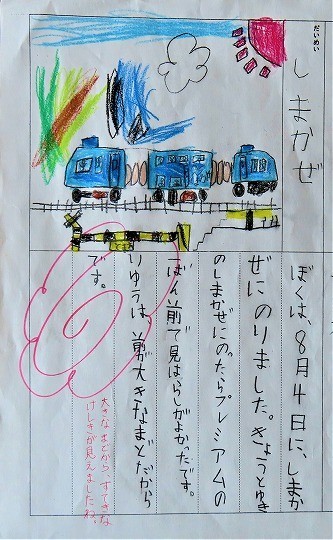 だいめい
しまかぜ
ぼくは、8月4日に、しまか
ぜにのりました。きょうとゆき
のしまかぜにのったらプレミアムの
ばん前で見はらしがよかったです。
りゆうは、前が大きなまどだから
です。
大きなまどから、すてきな
けしきが見えましたね。